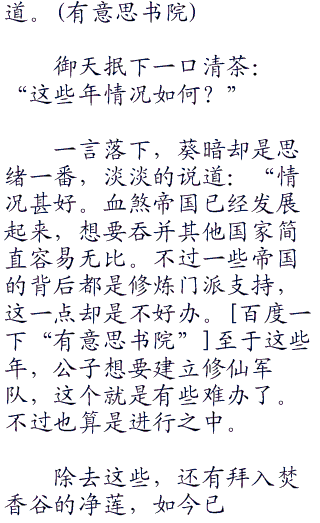 道。(有意思书院)
御天抿下一口清茶：
“这些年情况如何？”
一言落下，葵暗却是思
绪一番，淡淡的说道：“情
况甚好。血煞帝国已经发展
起来，想要吞并其他国家简
直容易无比。不过一些帝国
的背后都是修炼门派支持，
这一点却是不好办。[百度一
下“有意思书院”]至于这些
年，公子想要建立修仙军
队，这个就是有些难办了。
不过也算是进行之中。
除去这些，还有拜入焚
香谷的净莲，如今已